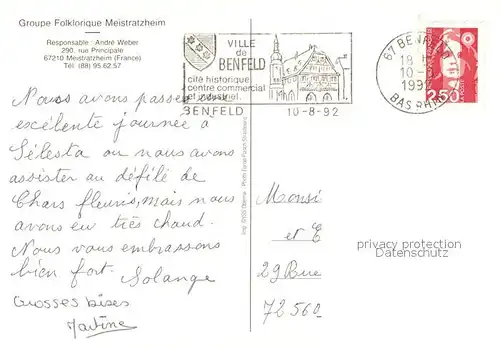 Groupe Folklorique Meistratzheim
Responsable : André Weber
290, rue Principale
67210 Meistratzheim (France)
Tél (88) 95 62.57
VILLE
de
BENFELD
cité historique
centre commercial
et industriel
BENFELD
10-8-92
67 BENFELD
18 H
10-8
1992
BAS RHIN
2,50
Nous avons passés une
excélente journée à
Sélesta ou nous avons
assister au défilé de
Chars fleuris, mais nous
avons eu très chaud.
Nous vous embrassons
bien fort. Solange
Grosses bises
Martine
Monsi
et
29 Rue
72560
privacy protection
Datenschutz